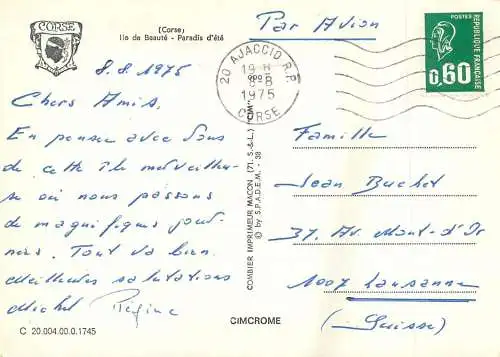 CORSE
(Corse)
Ile de Beauté - Paradis d'été
Par Avion
20 AJACCIO R.P.
19 H
8 - 8
1975
CORSE
POSTES
0,60
REPUBLIQUE FRANÇAISE
8.8.1975
Chers Amis.
En pensée avec vous
de cette île merveilleu-
se où nous passons
de magnifiques jour-
nées. Tout va bien.
Meilleures salutations
Michel Régine
COMBIER IMPRIMEUR MACON (71. S.-&-L.) "CIM"
© by S.P.A.D.E.M. - 38
Famille
Jean Buchet
37. Av. Mont-d'Or
1007 Lausanne
(Suisse)
C 20.004.00.0.1745
CIMCROME